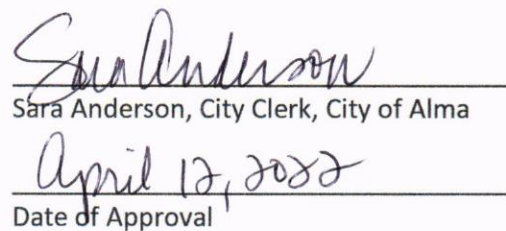 Sara Anderson
Sara Anderson, City Clerk, City of Alma
April 12, 2022
Date of Approval